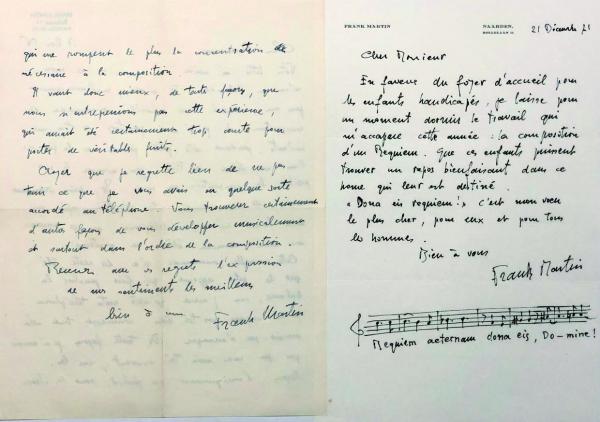 qui me rompent le plus la concentration
nécessaire à la composition.
Il vaut donc mieux, de toute façon, que
nous n'entreprenions pas cette expérience,
qui aurait été certainement trop courte pour
porter de véritables fruits.
Croyez que je regrette bien de ne pas
tenir ce que je vous avais en quelque sorte
accordé au téléphone. Vous trouverez certainement
d'autres façons de vous développer musicalement
et surtout dans l'ordre de la composition.
Recevez avec mes regrets l'expression
de mes sentiments les meilleurs
bien à vous
Frank Martin
FRANK MARTIN
NAARDEN,
BOLLELAAN 11
21 Décembre 71
Cher Monsieur
En faveur du foyer d'accueil pour
les enfants handicapés, je laisse pour
un moment dormir le travail qui
m'accapare cette année : la composition
d'un Requiem. Que ces enfants puissent
trouver un repos bienfaisant dans ce
home qui leur est destiné.
« Dona eis requiem ! » c'est mon vœu
le plus cher, pour eux et pour tous
les hommes.
Bien à vous
Frank Martin
Requiem aeternam dona eis, Do-mine !